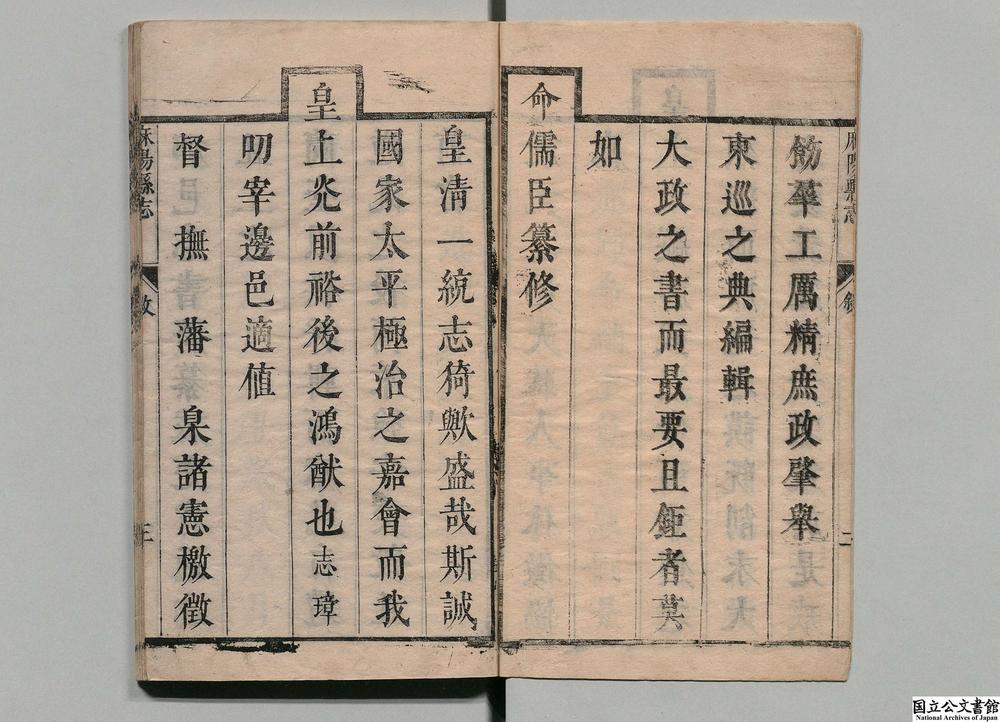 麻陽縣志
敘
二
飭羣工厲精庶政肇舉
東巡之典編輯
大政之書而最要且鉅者莫
如
命儒臣纂修
皇淸一統志猗歟盛哉斯誠
國家太平極治之嘉會而我
皇上光前裕後之鴻猷也志璋
叨宰邊邑適值
督撫藩臬諸憲檄徵
麻陽縣志
敘
三
国立公文書館
National Archives of Japan